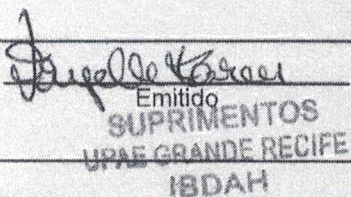 Emitido
SUPRIMENTOS
UPAE GRANDE RECIFE
IBDAH